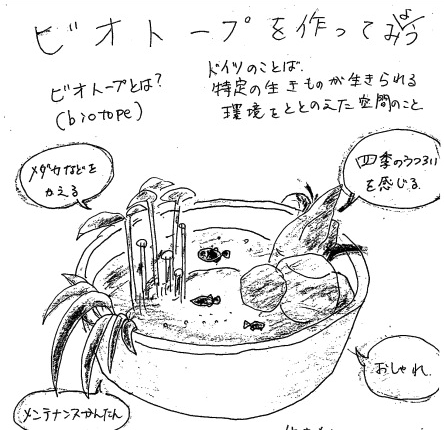 ビオトープを作ってみよう
ビオトープとは?
(biotope)
ドイツのことば.
特定の生きものが生きられる
環境をととのえた空間のこと
メダカなどを
かえる
四季のうつろい
を感じる.
おしゃれ.
メンテナンスかんたん